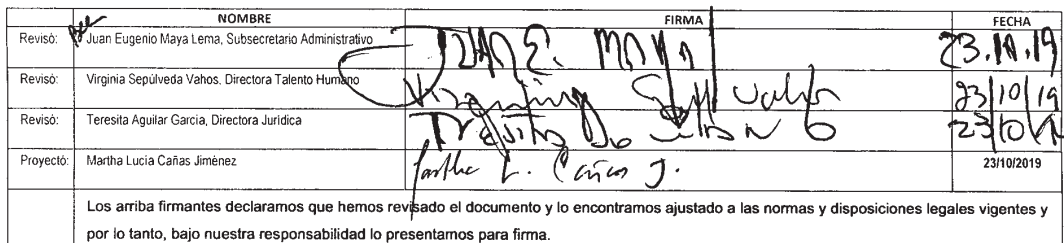 NOMBRE FIRMA FECHA
Revisó: Juan Eugenio Maya Lema, Subsecretario Administrativo JUAN E. MAYA 23.10.19
Revisó: Virginia Sepúlveda Vahos, Directora Talento Humano Virginia Sepulveda Vahos 23/10/19
Revisó: Teresita Aguilar Garcia, Directora Jurídica Teresita 23/10/19
Proyectó: Martha Lucia Cañas Jiménez Martha L. Cañas J. 23/10/2019
Los arriba firmantes declaramos que hemos revisado el documento y lo encontramos ajustado a las normas y disposiciones legales vigentes y
por lo tanto, bajo nuestra responsabilidad lo presentamos para firma.